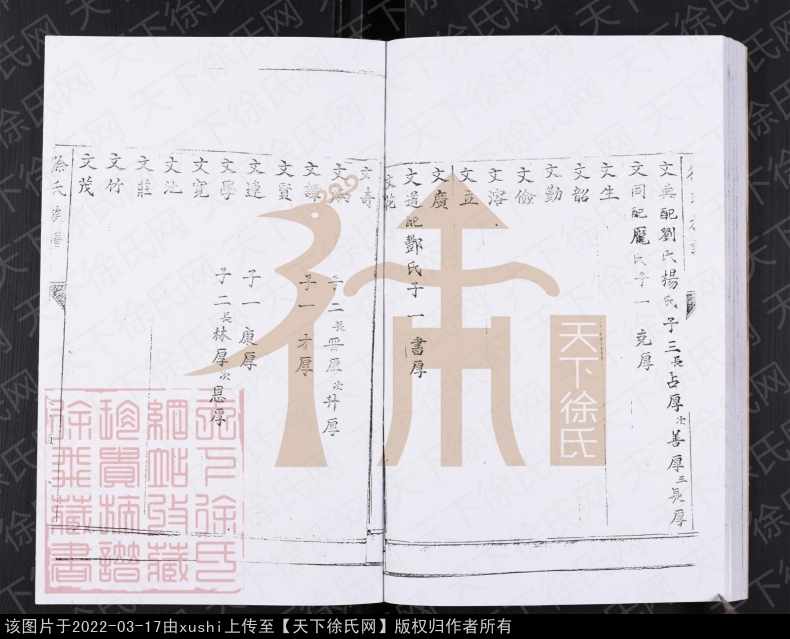 文典配劉氏楊氏子三長占厚次善厚三長厚
文同配龐氏子一克厚
文生
文韶
文勤
文儉
文溶
文立
文廣
文道配鄧氏子一書厚
文花
文壽
文炳 子二長晋厚次升厚
文謙 子一才厚
文賢
文達 子一康厚
文學 子二長林厚次恩厚
文寬
文江
文莊
文竹
文茂
徐氏族譜
天下徐氏
天下徐氏
網站收藏
珍貴族譜
徐兵藏書
该图片于2022-03-17由xushi上传至【天下徐氏网】版权归作者所有